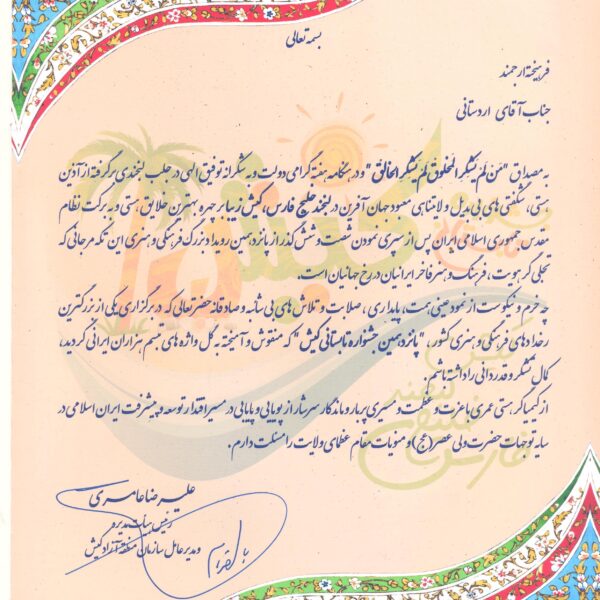 بسمه تعالی
فرهیخته ارجمند
جناب آقای اردستانی
به مصداق "مَن لَم یَشکُر المَخلوق لَم یَشکُر الخالِق" و در هنگامه هفته گرامی دولت و به شکرانه توفیق الهی در جلب لبخندی برگرفته از آذین
هستی، شگفتی های بی بدیل و لامتناهی معبود جهان آفرین در لبخند خلیج فارس، کیش زیبا بر چهره بهترین خلایق هستی و به برکت نظام
مقدس جمهوری اسلامی ایران پس از سپری نمودن شصت و شش گذر از پانزدهمین رویداد بزرگ فرهنگی و هنری این تکه مرجانی که
تجلی گر هویت، فرهنگ و هنر فاخر ایرانیان در رخ جهانیان است.
چه خرم و نیکوست از نمود عینی همت، پایداری، صلابت و تلاش های بی شائبه و صادقانه حضرتعالی که در برگزاری یکی از بزرگترین
رخدادهای فرهنگی و هنری کشور، "پانزدهمین جشنواره تابستانی کیش" که منقوش و آمیخته به گل واژه های تبسم هزاران ایرانی گردید،
کمال تشکر و قدردانی را داشته باشم.
از کیمیاگر هستی عمری با عزت و عظمت و مسیری پربار و ماندگار سرشار از پویایی و پایایی در مسیر اقتدار توسعه و پیشرفت ایران اسلامی در
سایه توجهات حضرت ولی عصر (عج) و منویات مقام عظمای ولایت را مسئلت دارم.
علیرضا عامری
رئیس هیات مدیره
و مدیر عامل سازمان منطقه آزاد کیش
کیش